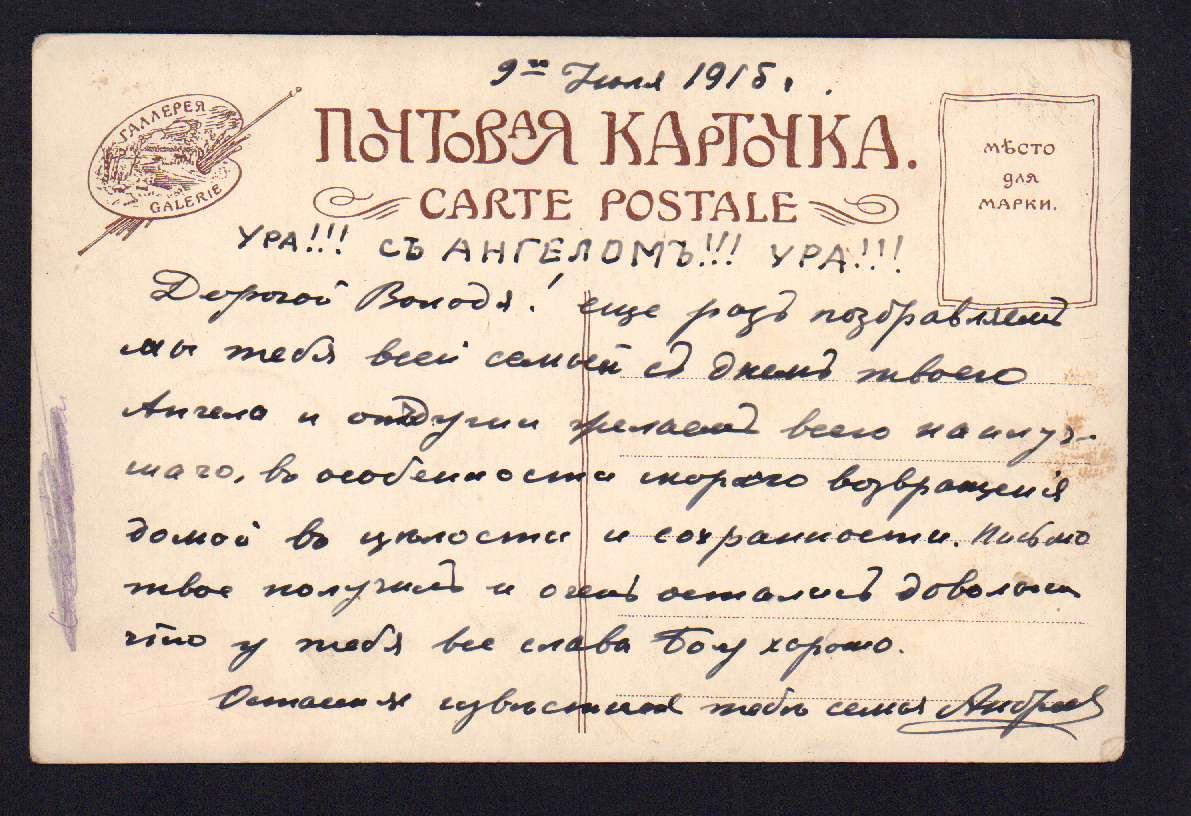 9го Июля 1915 г.
ГАЛЛЕРЕЯ
GALERIE
ПОЧТОВАЯ КАРТОЧКА.
CARTE POSTALE
МѢСТО
ДЛЯ
МАРКИ.
УРА!!! СЪ АНГЕЛОМЪ!!! УРА!!!
Дорогой Володя! еще разъ поздравляемъ
мы тебя всей семьей съ днемъ твоего
Ангела и отъ души желаемъ всего наилуч-
шаго, въ особенности скораго возвращенія
домой въ цѣлости и сохранности. Письмо
твое получилъ и очень остались довольны
что у тебя все слава Богу хорошо.
тебѣ семья